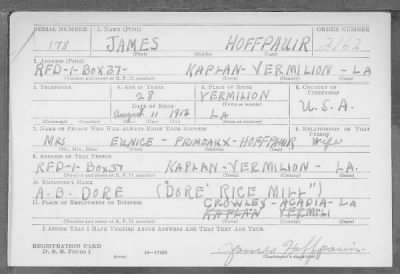 SERIAL NUMBER 1. NAME (Print) ORDER NUMBER
178 JAMES HOFFPAUIR 2162
(First) (Middle) (Last)
2. ADDRESS (Print)
RFD-1-BOX 37- KAPLAN-VERMILION-LA
(Number and street or R. F. D. number) (Town) (County) (State)
3. TELEPHONE 4. AGE IN YEARS 5. PLACE OF BIRTH 6. COUNTRY OF CITIZENSHIP
28 VERMILION
DATE OF BIRTH (Town or county) U.S.A.
August 11 1912 LA
(Exchange) (Number) (Mo.) (Day) (Yr.) (State or country)
7. NAME OF PERSON WHO WILL ALWAYS KNOW YOUR ADDRESS 8. RELATIONSHIP OF THAT PERSON
MRS EUNICE-PRIMEAUX-HOFFPAUIR Wife
(Mr., Mrs., Miss) (First) (Middle) (Last)
9. ADDRESS OF THAT PERSON
RFD-1-BOX 37 KAPLAN-VERMILION-LA.
(Number and street or R. F. D. number) (Town) (County) (State)
10. EMPLOYER'S NAME
A. B. DORE ("DORE' RICE MILL")
11. PLACE OF EMPLOYMENT OR BUSINESS CROWLEY-ACADIA-LA
KAPLAN VERMILI
(Number and street or R. F. D. number) (Town) (County) (State)
I AFFIRM THAT I HAVE VERIFIED ABOVE ANSWERS AND THAT THEY ARE TRUE.
REGISTRATION CARD
D. S. S. Form 1 (over) James Hoffpauir
(Registrant's signature)